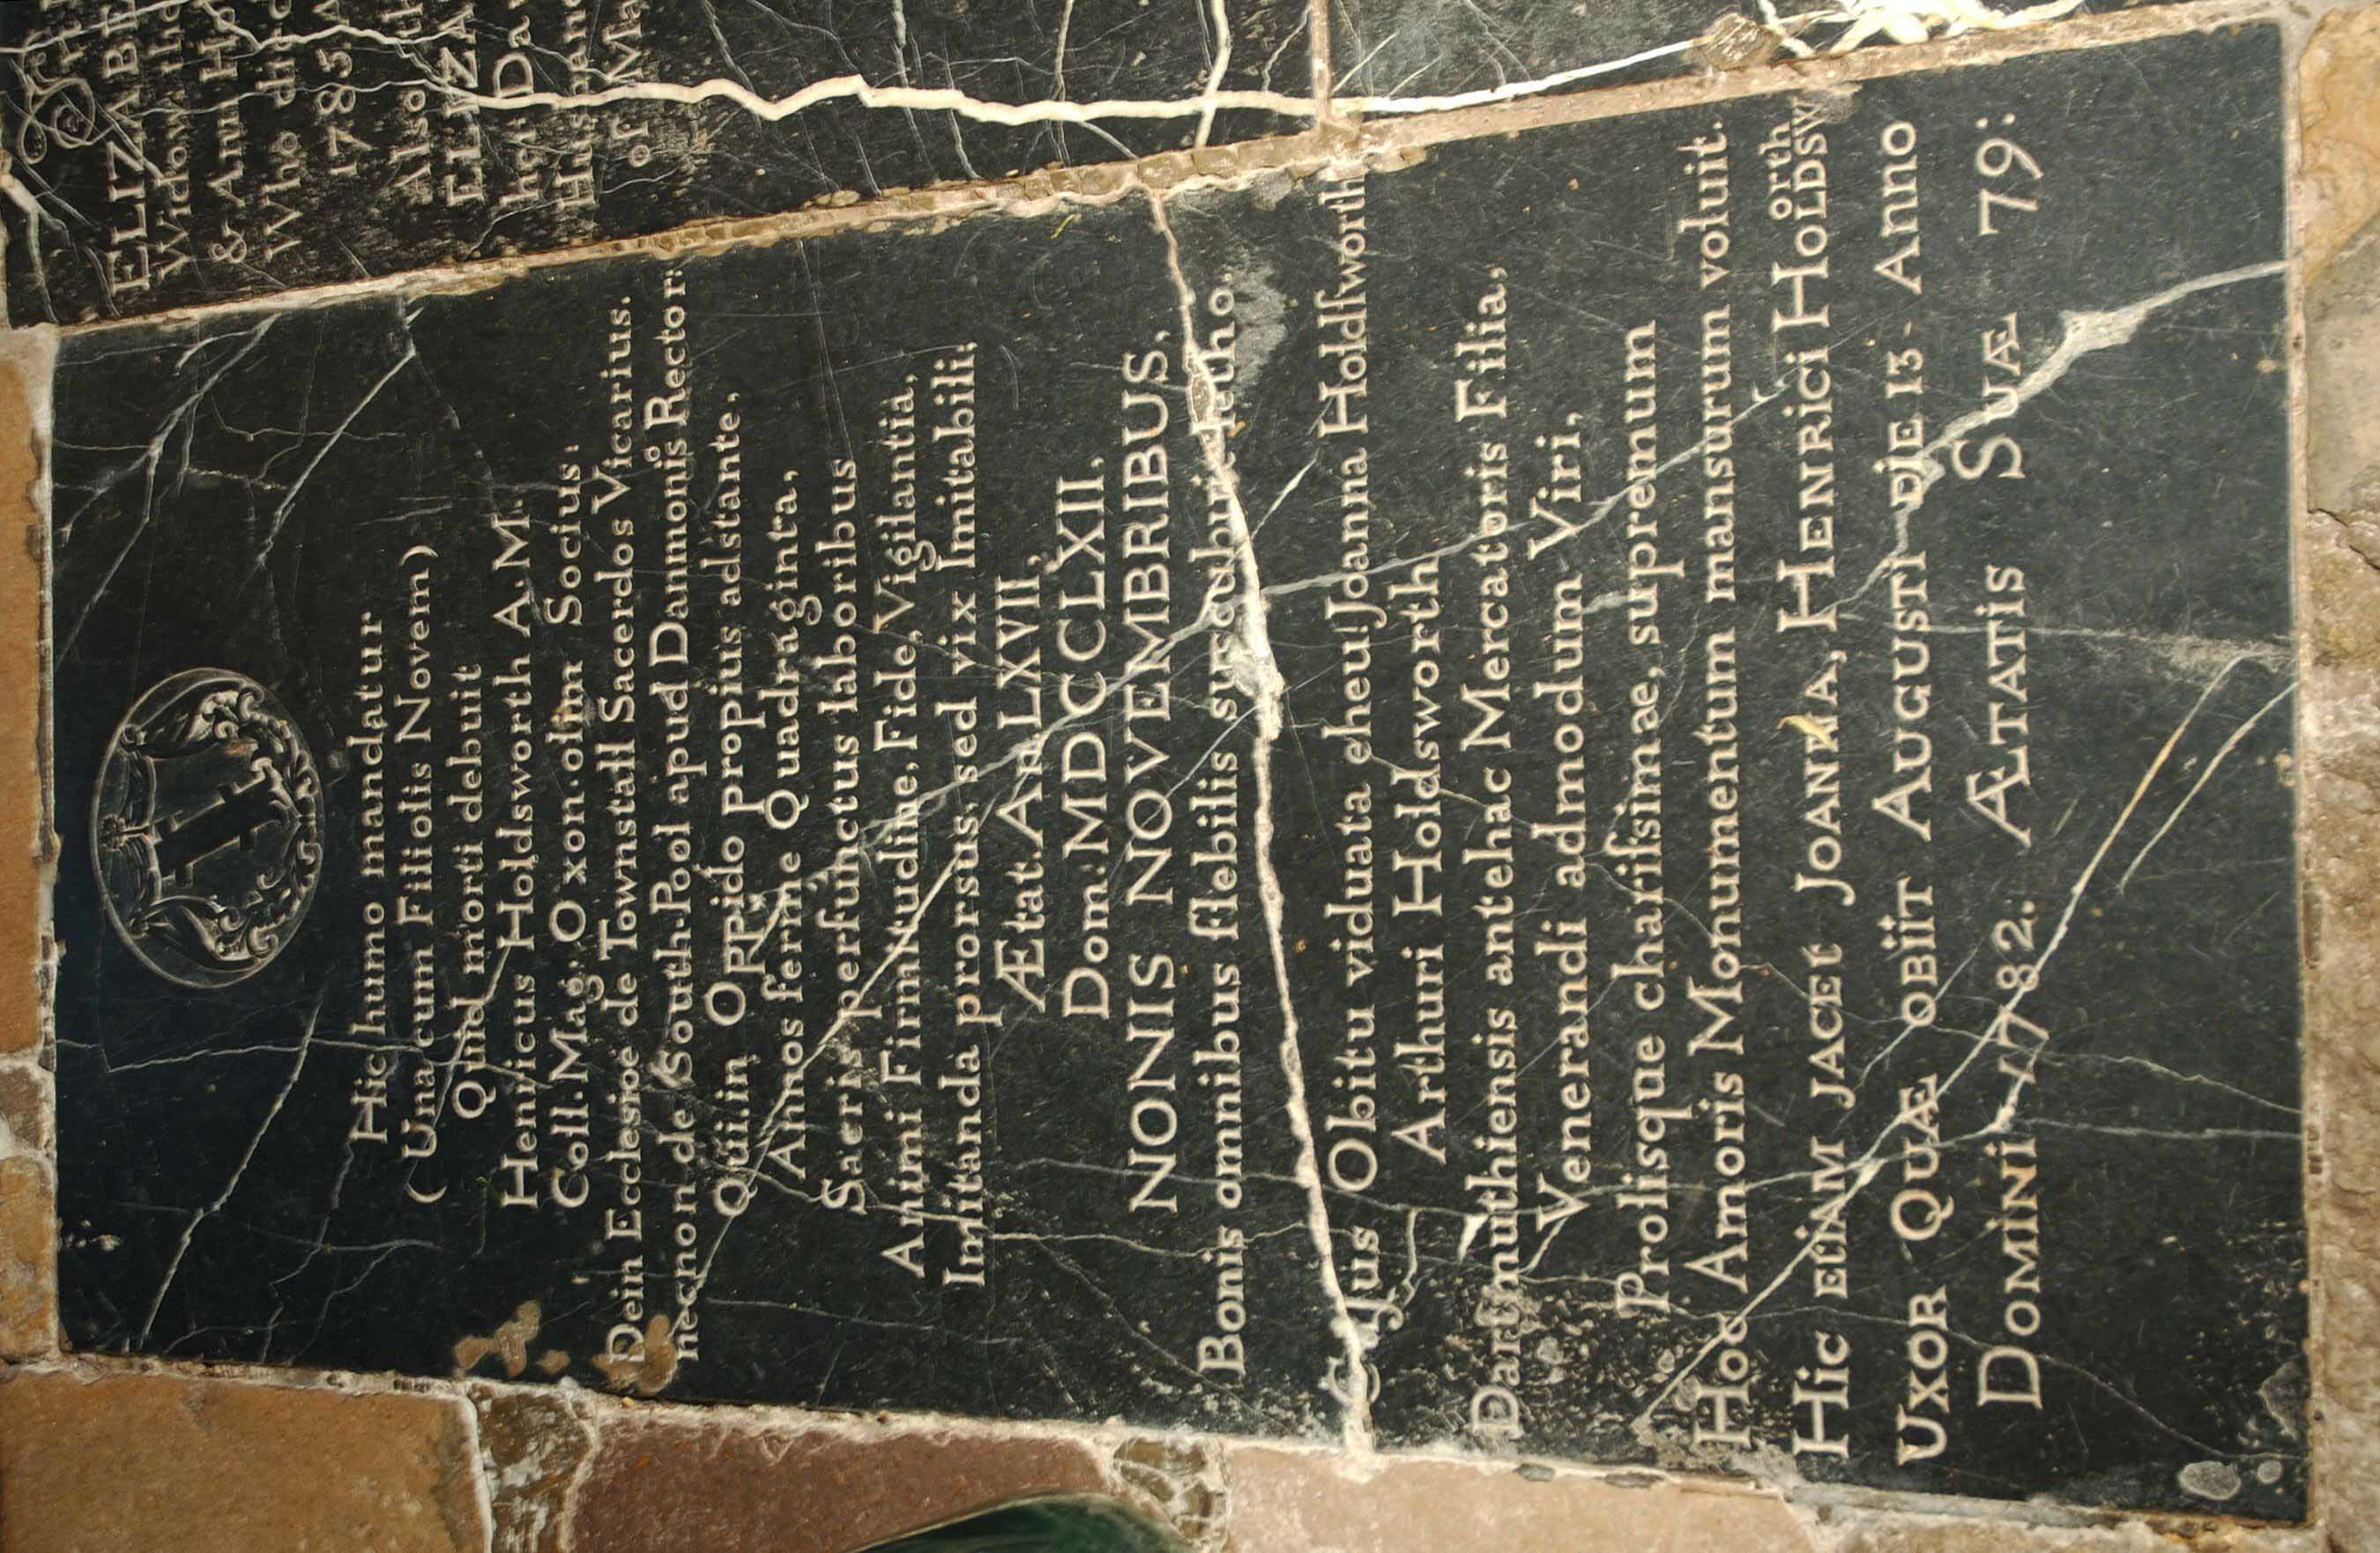 ELIZABE
Widow
& Ann
Who di
1785
Also
ELIZA
Da
of Ma
Hic humo mandatur
(Una cum Filiolis Novem)
Quid morti debuit
Henricus Holdsworth A.M.
Coll. Mag. Oxon. olim Socius:
Dein Ecclesiœ de Townstall Sacerdos Vicarius.
necnon de South-Pool apud Danmonios Rector:
Qui in Oppido propius adstante,
Annos ferme Quadraginta,
Sacris perfunctus laboribus
Animi Firmitudine, Fide, Vigilantia,
Imitanda prorsus, sed vix Imitabili,
Ætat. An. LXVII,
Dom: MDCCLXII,
NONIS NOVEMBRIBUS,
Bonis omnibus flebilis succubuit letho.
Cujus Obitu viduata eheu! Joanna Holdſworth
Arthuri Holdsworth
Dartmuthiensis antehac Mercatoris Filia,
Venerandi admodum Viri,
Prolisque chariſsimae, supremum
Hoc Amoris Monumentum mansurum voluit.
Hic etiam jacet Joanna, Henrici Holdsworth
uxor Quæ obiit Augusti Die 13 - Anno
Domini 1782. Ætatis Suæ 79: